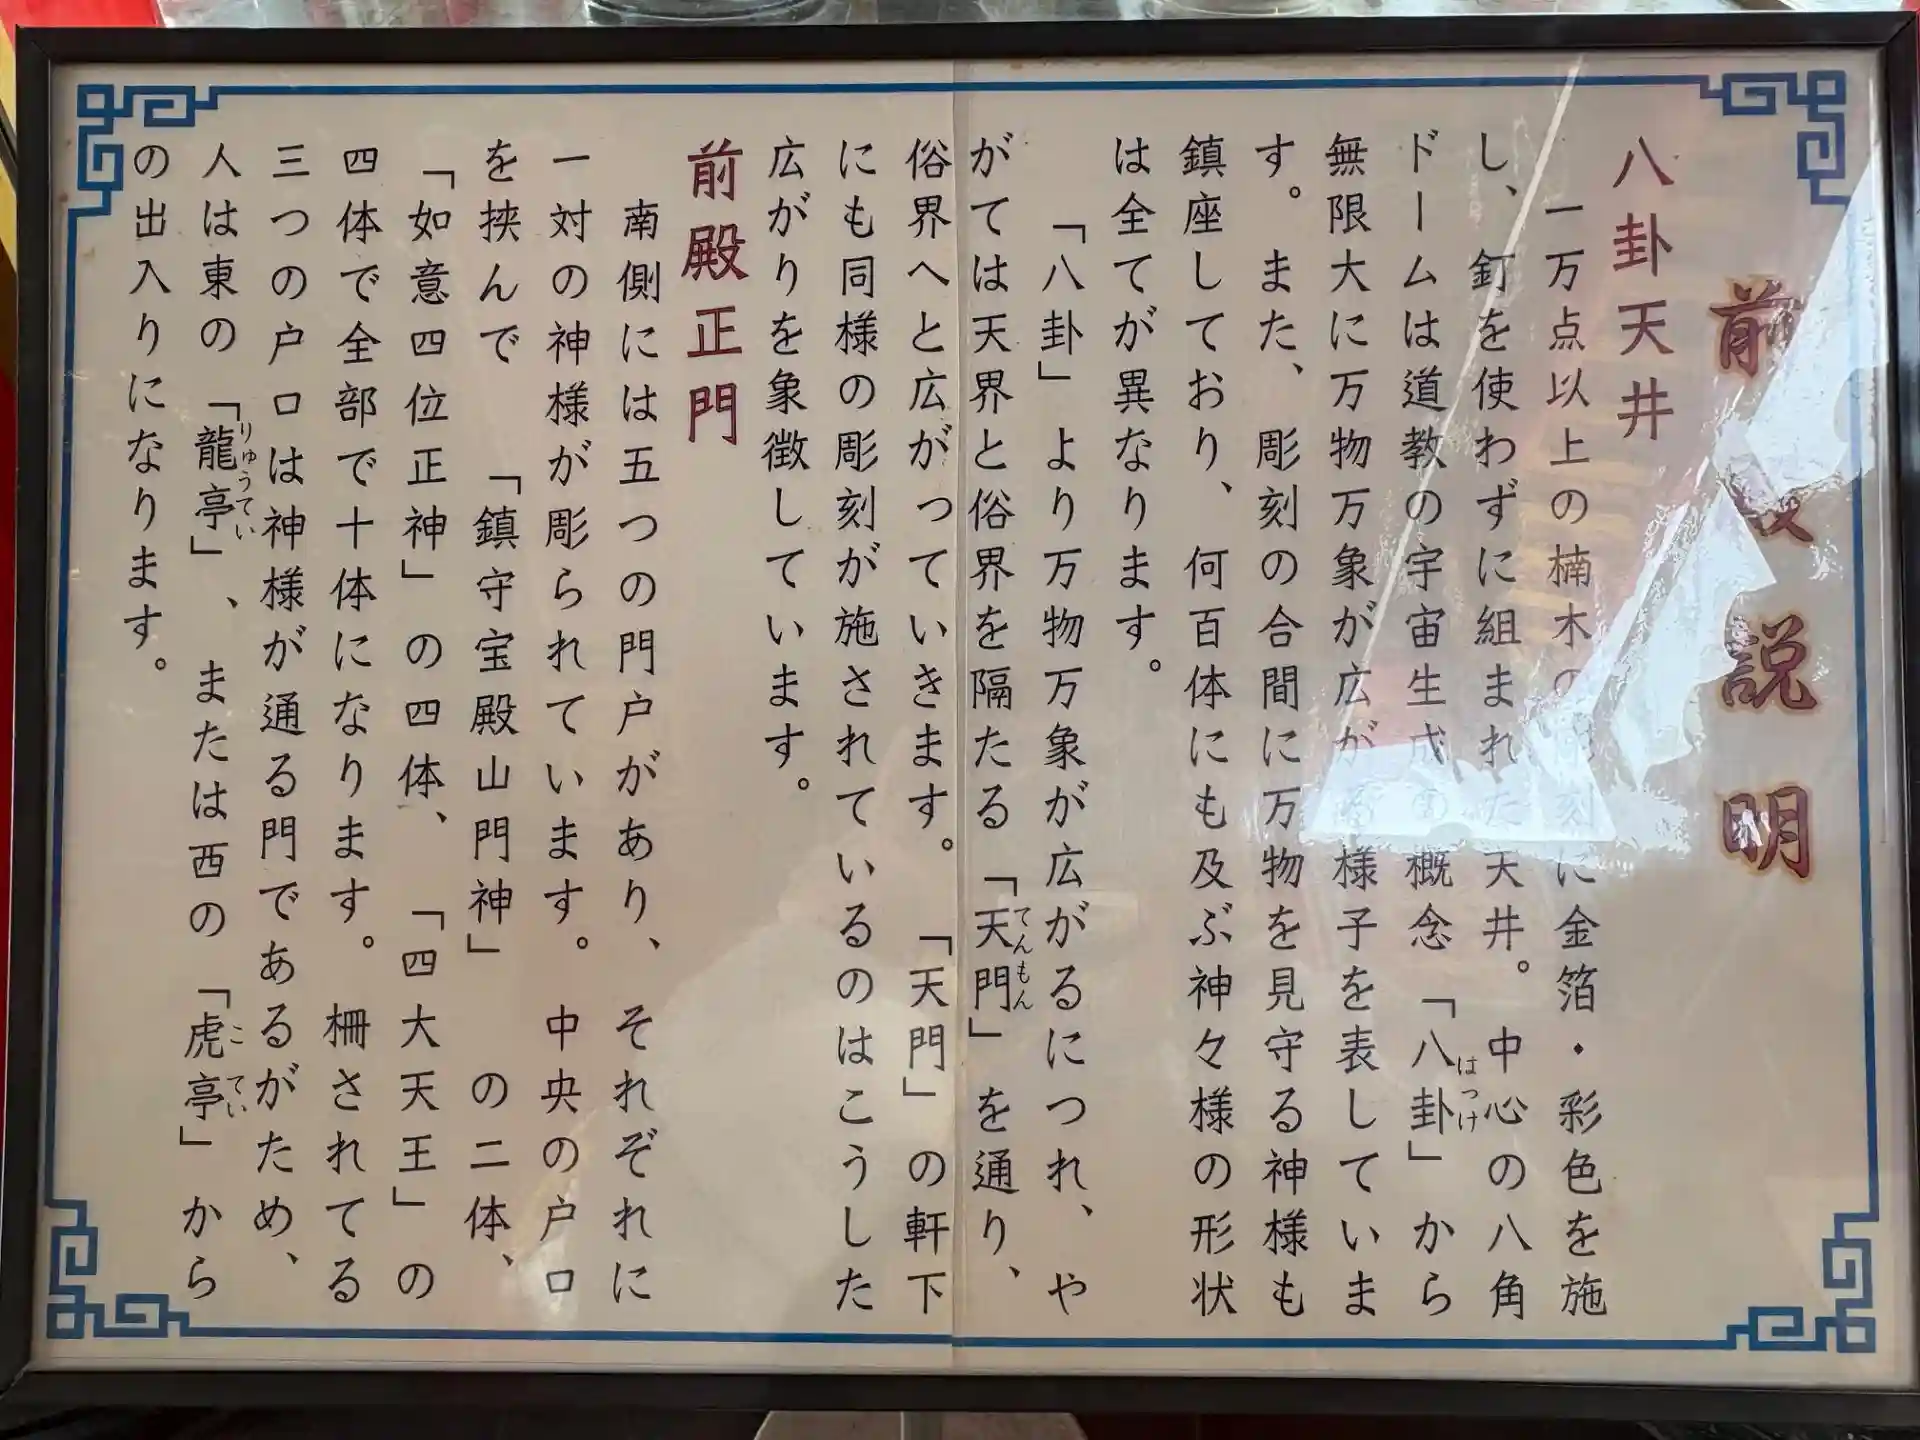 前殿説明
八卦天井
一万点以上の楠木の彫刻に金箔・彩色を施
し、釘を使わずに組まれた天井。中心の八角
ドームは道教の宇宙生成の概念「八卦」から
はっけ
無限大に万物万象が広がる様子を表していま
す。また、彫刻の合間に万物を見守る神様も
鎮座しており、何百体にも及ぶ神々様の形状
は全てが異なります。
「八卦」より万物万象が広がるにつれ、や
がては天界と俗界を隔たる「天門」を通り、
てんもん
俗界へと広がっていきます。「天門」の軒下
にも同様の彫刻が施されているのはこうした
広がりを象徴しています。
前殿正門
南側には五つの門戸があり、それぞれに
一対の神様が彫られています。中央の戸口
を挟んで「鎮守宝殿山門神」の二体、
「如意四位正神」の四体、「四大天王」の
四体で全部で十体になります。柵されてる
三つの戸口は神様が通る門であるがため、
人は東の「龍亭」、または西の「虎亭」から
りゅうてい こてい
の出入りになります。